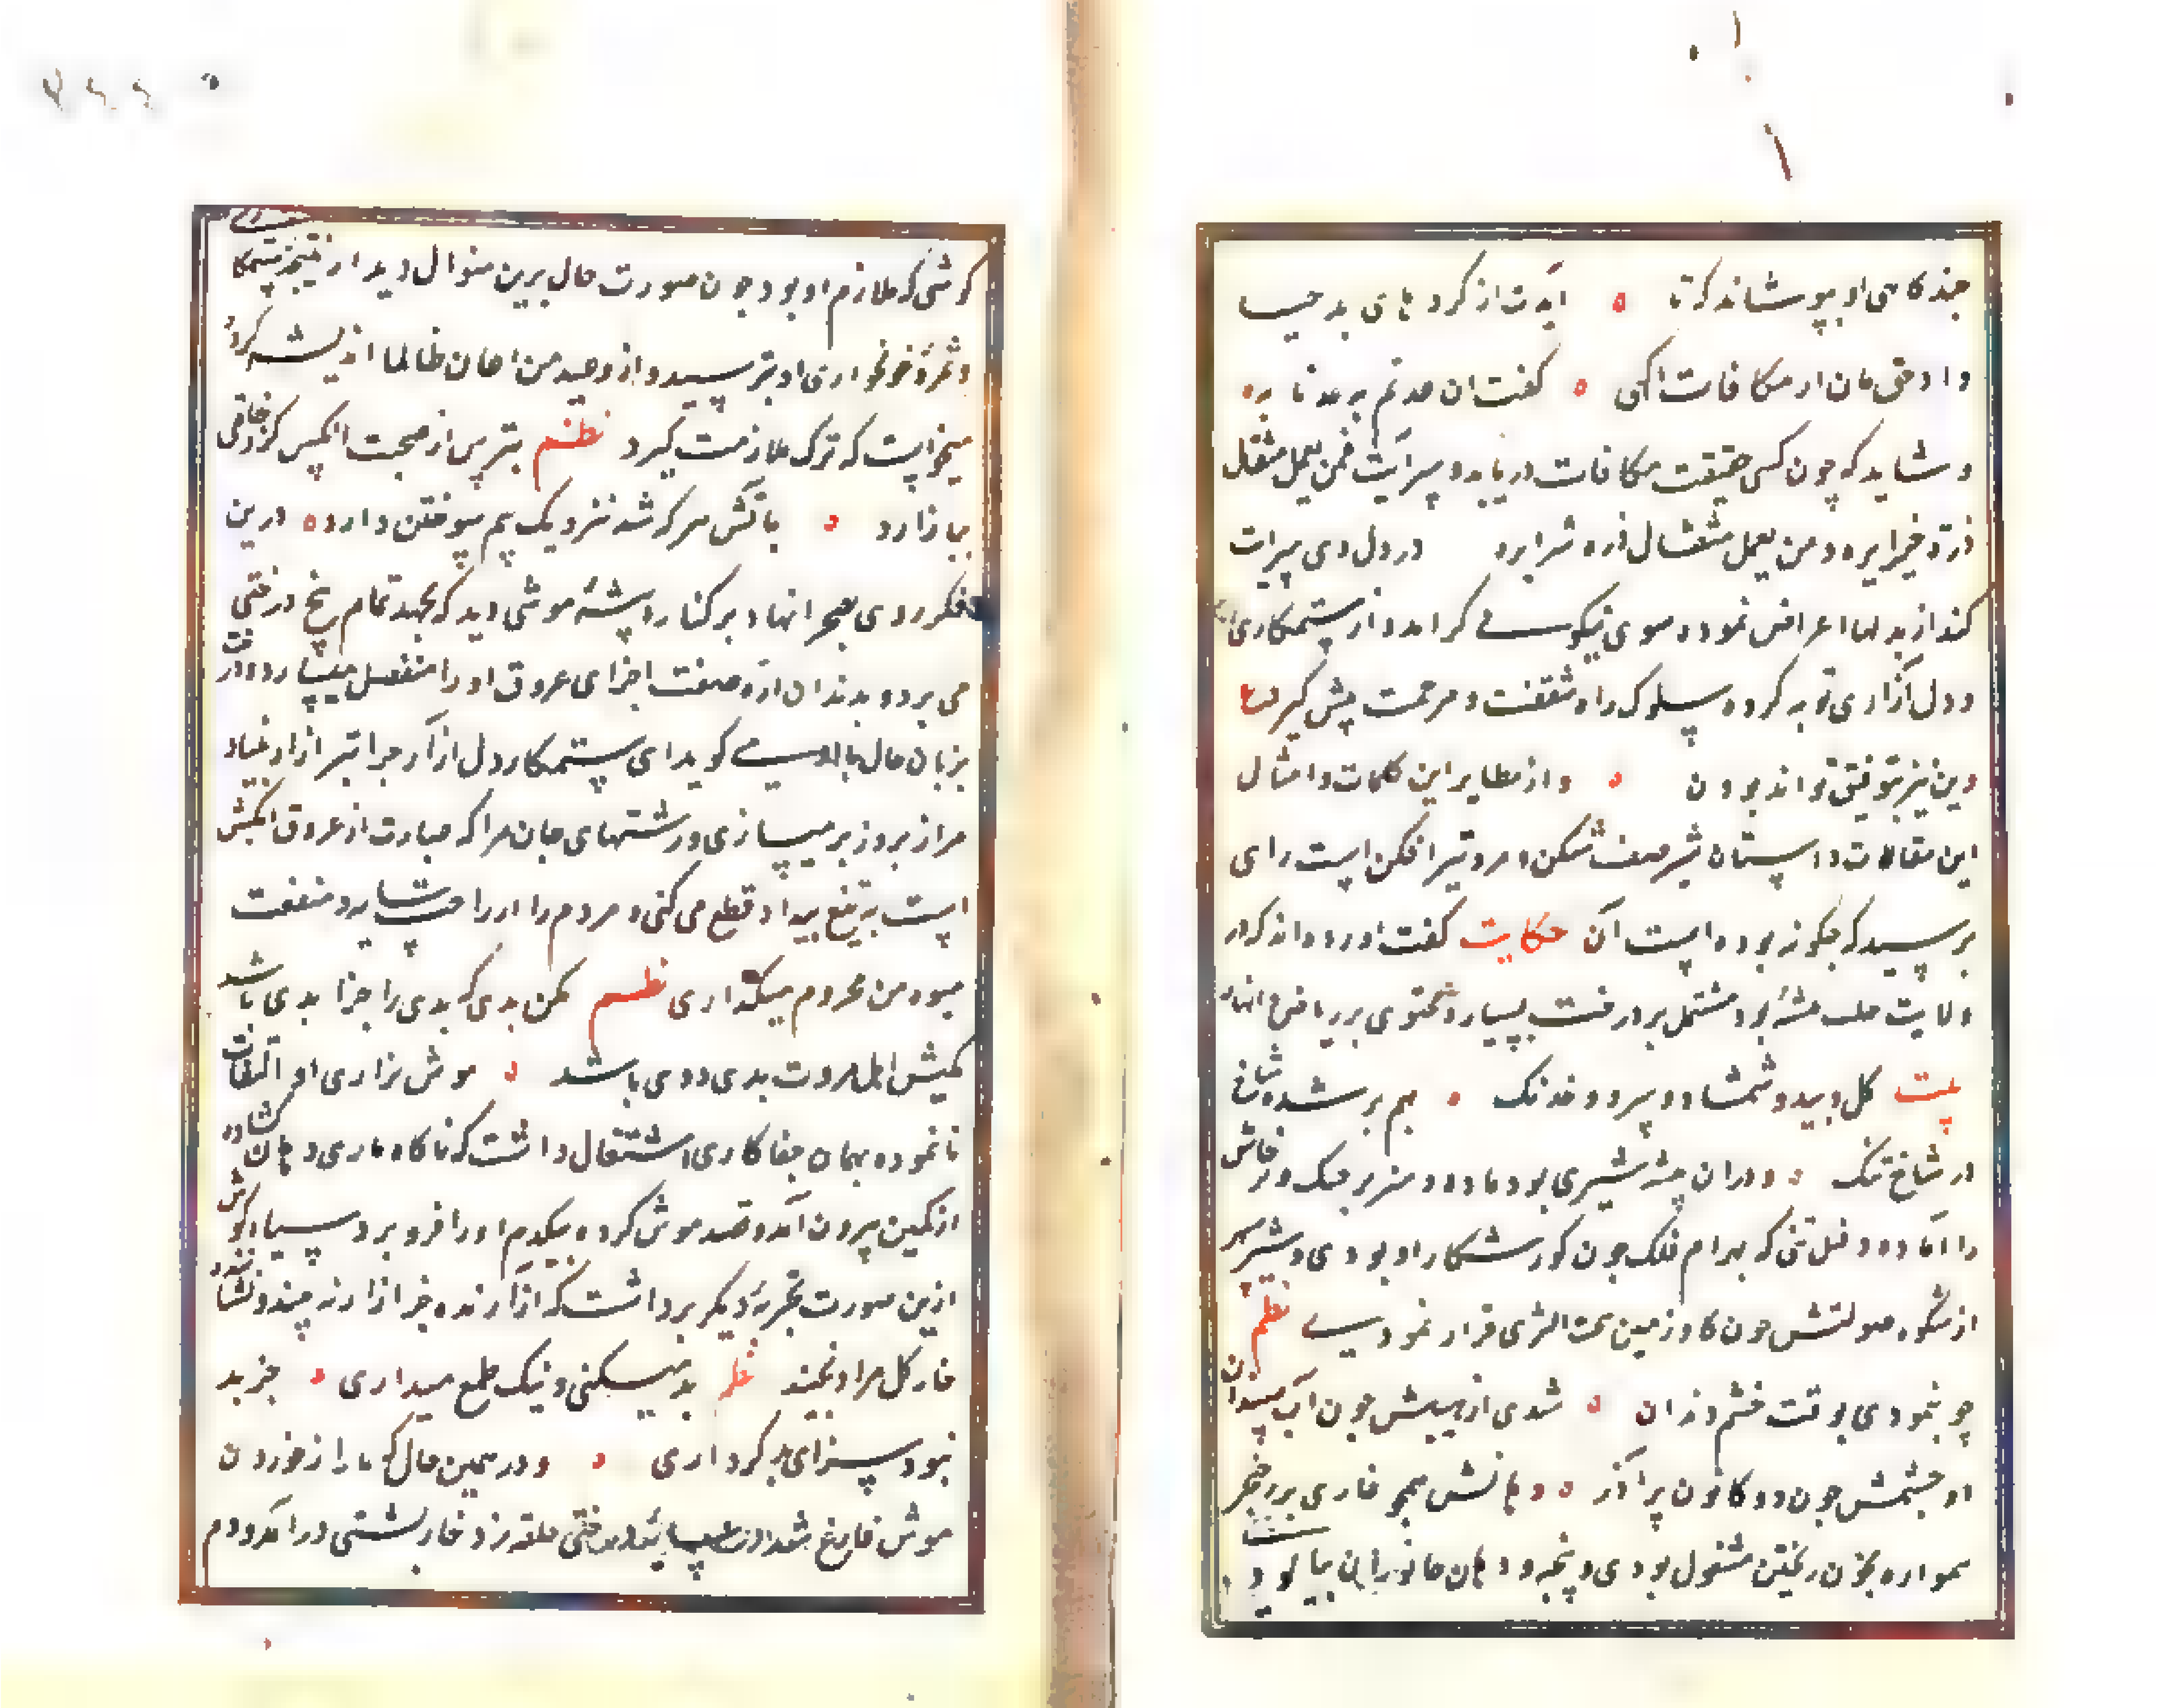 جند کاهی او بپوشاند که تا ه آیدت از کردهای بد حیا
وا و حق مان از مکافات آکهی ه کفت ان
و شاید که چون کسی حقیقت مکافات دریابد و سرآیت فمن یعمل مثقال
ذرة خیرا یره و من یعمل مثقال ذره شرا یره در دل وی سرایت
کند از بدیها اعراض نموده سوی نیکویی کراید و از ستمکاری
و دل آزاری توبه کرده سلوک راه شفقت و مرحمت پیش کیرد ع
وین نیز بتوفیق تواند بودن ه و از نظایر این کلمات و امثال
این مقالات داستان شیر صف شکن و مرد تیرافکن است رای
پرسید که جکونه بوده است آن حکایت کفت اورده اند که در
ولایت حلب بیشهٔ بود مشتمل بر درخت بسیار و محتوی بر ریاض انهار
بیت کل و بید و شمشاد و سرو و خدنک ه بهم بر شده شاخ
در شاخ تنک ه و دران بیشه شیری بود
را آماده و فیل تنی که بهرام فلک جون کور شکار او بودی و شیر سپهر
از شکوه صولتش جون کاو زمین تحت الثری قرار نمودی نظم
چو بنمودی بوقت خشم دندان ه شدی از هیبتش جون آب سندان
دو جشمش جون دو کانون پر آذر ه دهانش همچو غاری پر ز خنجر
همواره بخون ریختن مشغول بودی و پنجه و دهان
کوشی که ملازم او بود جون صورت حال برین منوال دید از نتیجه ستمکاری
و ثمرهٔ خونخواری او بترسید و از وعید من اعان ظالما اندیشه کرده
میخواست که ترک ملازمت کیرد نظم بترس از صحبت آنکس که خلقی
بیازارد ه باتش هر که شد نزدیک بیم سوختن دارد ه درین
تفکر روی بصحرا نهاد و بر کناره بیشهٔ موشی دید که بجهد تمام بیخ درختی
می برد و بدندان اره صفت اجزای عروق او را منفصل میسازد و درخت
بزبان حال با او می کوید ای ستمکار دل آزار جرا بتبر ازار بنیاد
مرا زبر و زیر میسازی و رشتهای جان مرا که عبارت از عروق آبکش
است بتیغ بیداد قطع می کنی و مردم را از راحت سایه و منفعت
میوه من محروم میکذاری نظم مکن بدی که بدی را جزا بدی باشد
بکیش اهل مروت بدی ددی باشد ه موش بزاری او التفات
نانموده بهمان جفاکاری اشتغال داشت که ناکاه ماری دهان کشاده
از کمین بیرون آمد و قصد موش کرده بیکدم او را فرو برد سیاه کوش
ازین صورت تجربهٔ دیکر برداشت که ازارنده جز ازار نه بیند و نشاننده
خار کل مراد نچیند نظم بد میکنی و نیک طمع میداری ه جز بد
نبود سزای بد کرداری ه و در همین حال که مار از خوردن
موش فارغ شد در سایهٔ درختی حلقه زد خارپشتی در آمد و دم